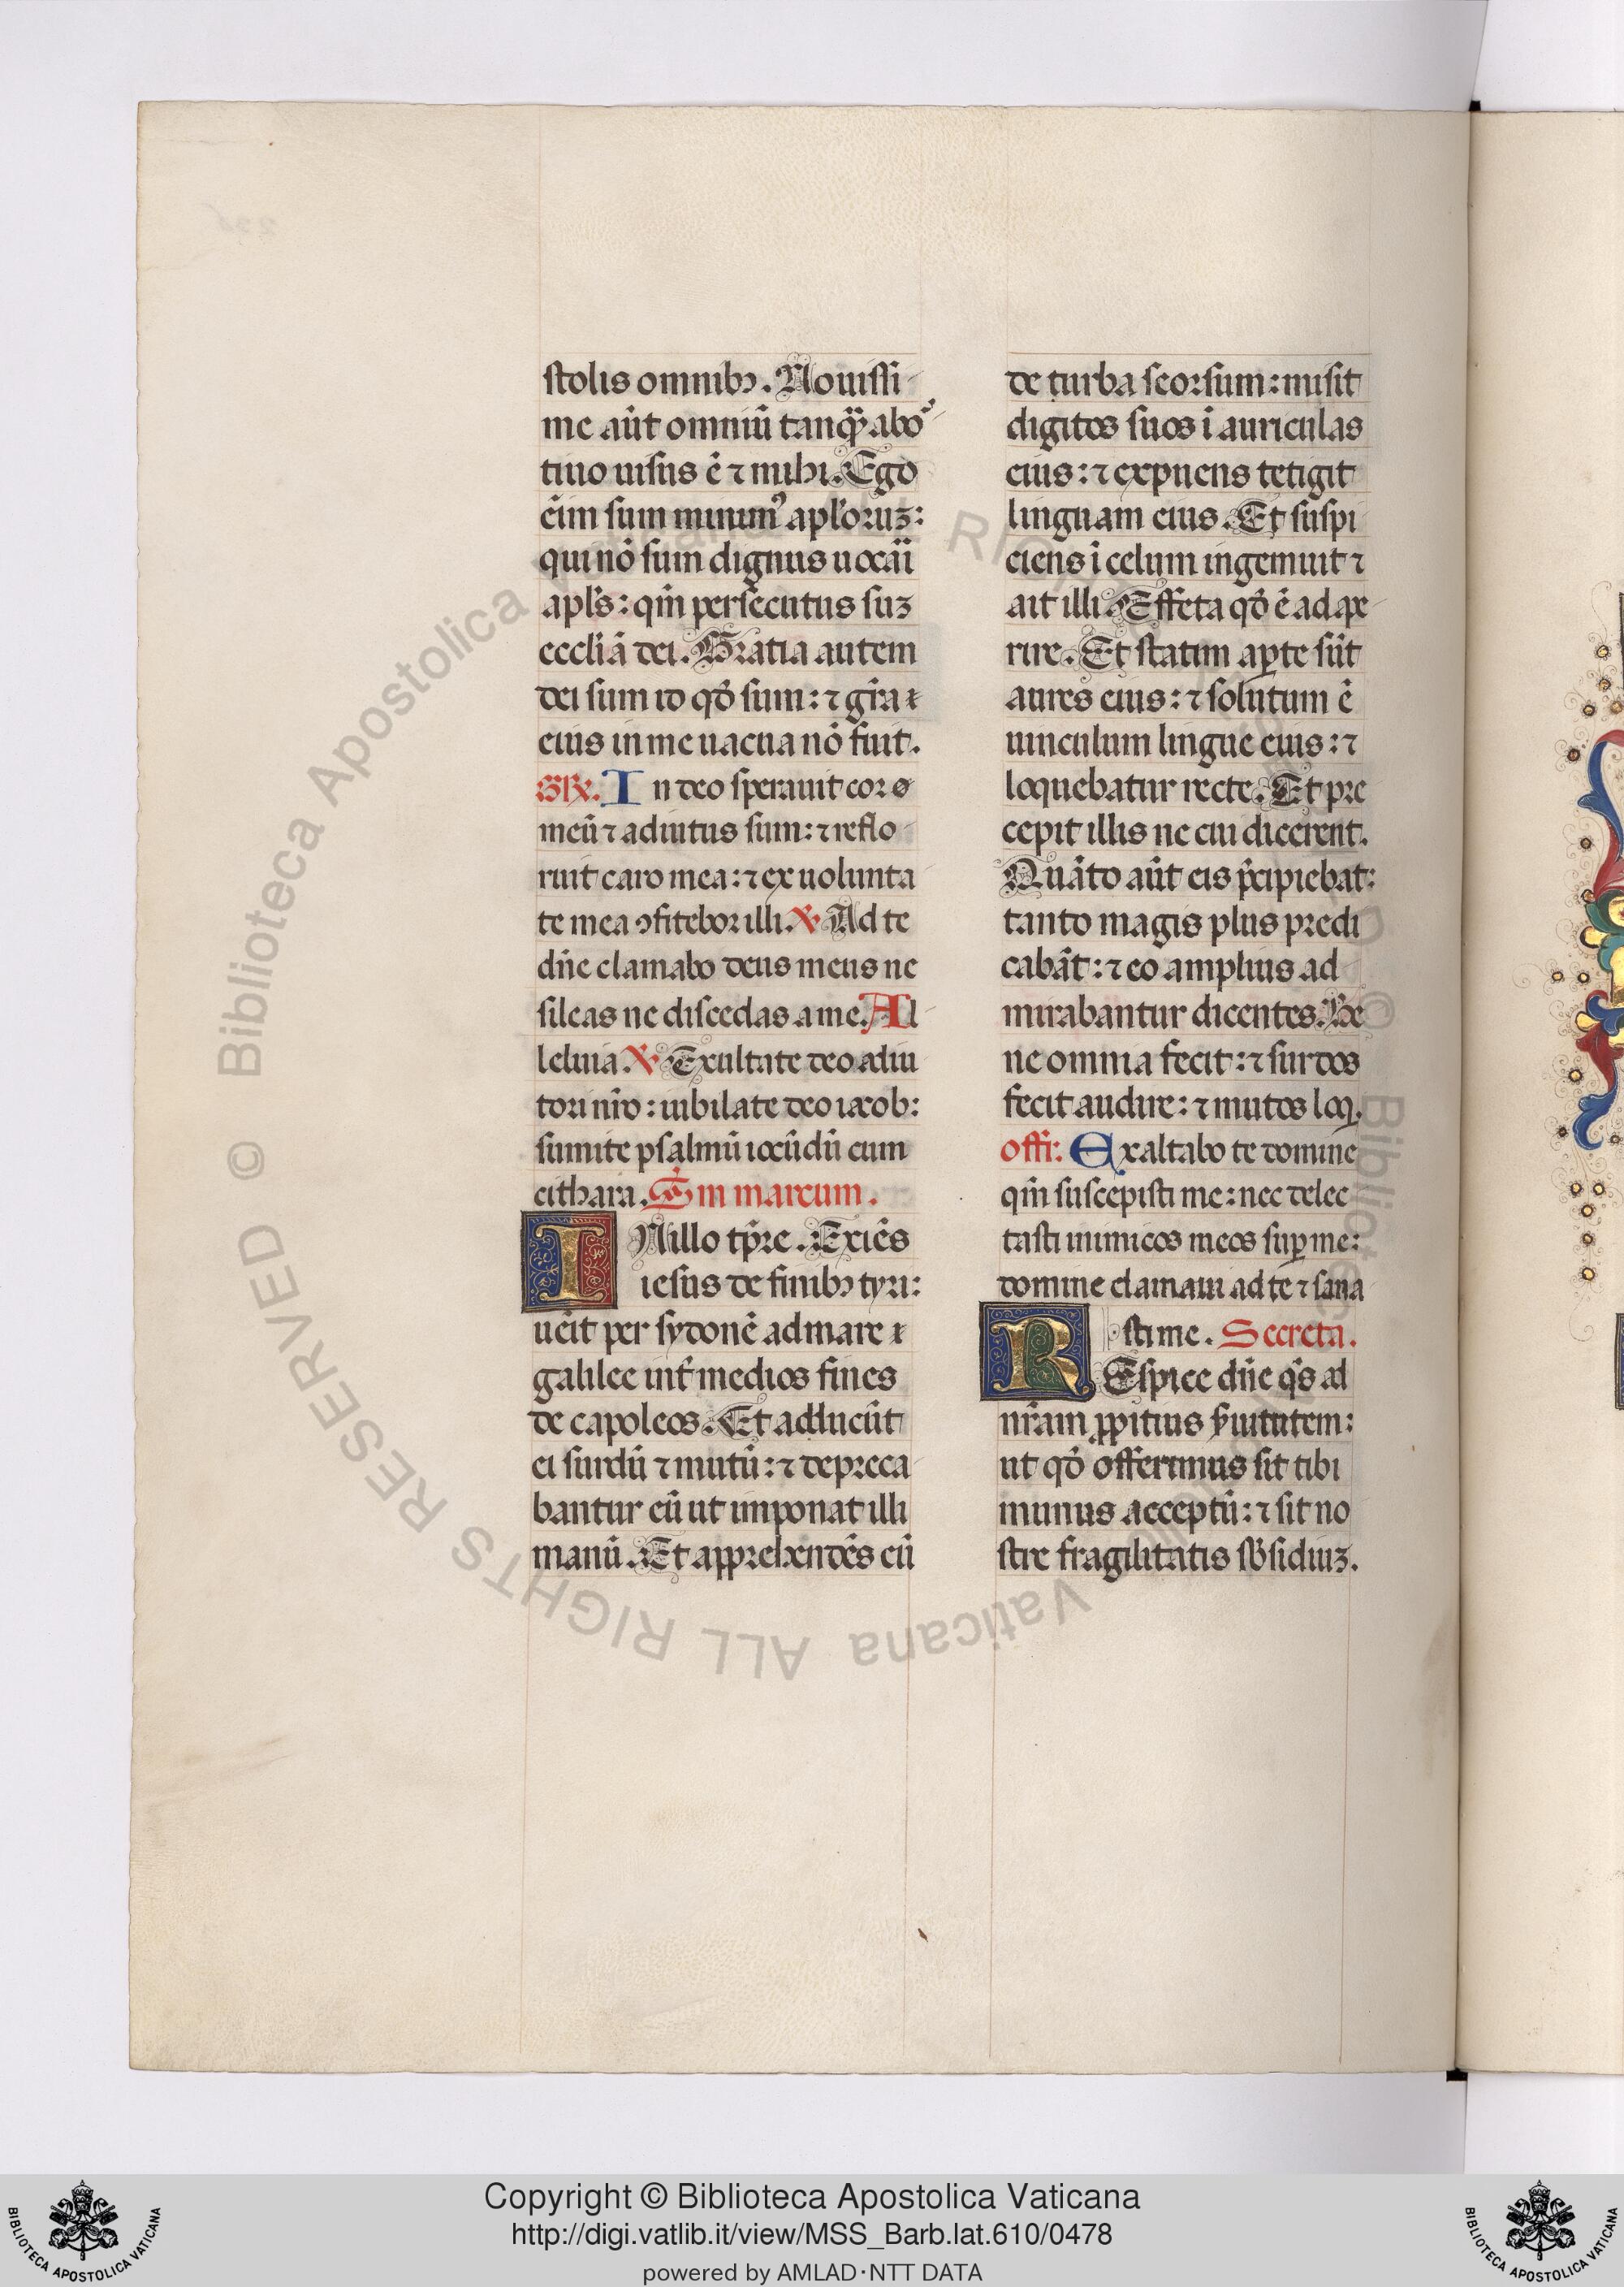 stolis omnibꝫ. Nouissi
me aūt omniū tanqͣꝫ abo
tiuo uisus ē ⁊ mihi. Ego
ēim sum minimꝰ apl̄oruꝫ:
qui nō sum dignus uocari
apl̄s: qm̄ persecutus suꝫ
eccl̄iā dei. Gratia autem
dei sum id qđ sum: ⁊ gr̄a
eius in me uacua nō fuit.
GR. In deo sperauit cor
meū ⁊ adiutus sum: ⁊ reflo
ruit caro mea: ⁊ ex uolunta
te mea ↄfitebor illi. ℣ Ad te
dn̄e clamabo deus meus ne
sileas ne discedas a me. Al
leluia ℣ Exultate deo adiu
tori nr̄o: iubilate deo iacob:
sumite psalmū iocūdū cum
cithara. Sm marcum.
INillo tp̄re. Exiēs
iesus de finibꝫ tyri:
uēit per sydonē ad mare
galilee int̄ medios fines
de capoleos. Et adducūt
ei surdū ⁊ mutū: ⁊ depreca
bantur eū ut imponat illi
manū. Et apprehendēs eū
de turba seorsum: misit
digitos suos ī auriculas
eius: ⁊ expuens tetigit
linguam eius. Et suspi
ciens ī celum ingemuit ⁊
ait illi. Effeta qđ ē adape
rire. Et statim aꝑte sūt
aures eius: ⁊ solutum ē
uinculum lingue eius: ⁊
loquebatur recte. Et pre
cepit illis ne cui dicerent.
Quāto aūt eis p̄cipiebat:
tanto magis plus predi
cabāt: ⁊ eo amplius ad
mirabantur dicentes. Be
ne omnia fecit: ⁊ surdos
fecit audire: ⁊ mutos loq.
offr: Exaltabo te domine
qm̄ suscepisti me: nec delec
tasti inimicos meos suꝑ me:
domine clamaui ad te ⁊ sana
sti me. Secreta.
REspice dn̄e qs̄ ad
nr̄am ꝓpitius s̄uitutem:
ut qđ offerimus sit tibi
munus acceptū: ⁊ sit no
stre fragilitatis sb̄sidiuꝫ.
© Biblioteca Apostolica Vaticana ALL RIGHTS RESERVED
Copyright © Biblioteca Apostolica Vaticana
http://digi.vatlib.it/view/MSS_Barb.lat.610/0478
powered by AMLAD·NTT DATA
BIBLIOTECA APOSTOLICA VATICANA
BIBLIOTECA APOSTOLICA VATICANA